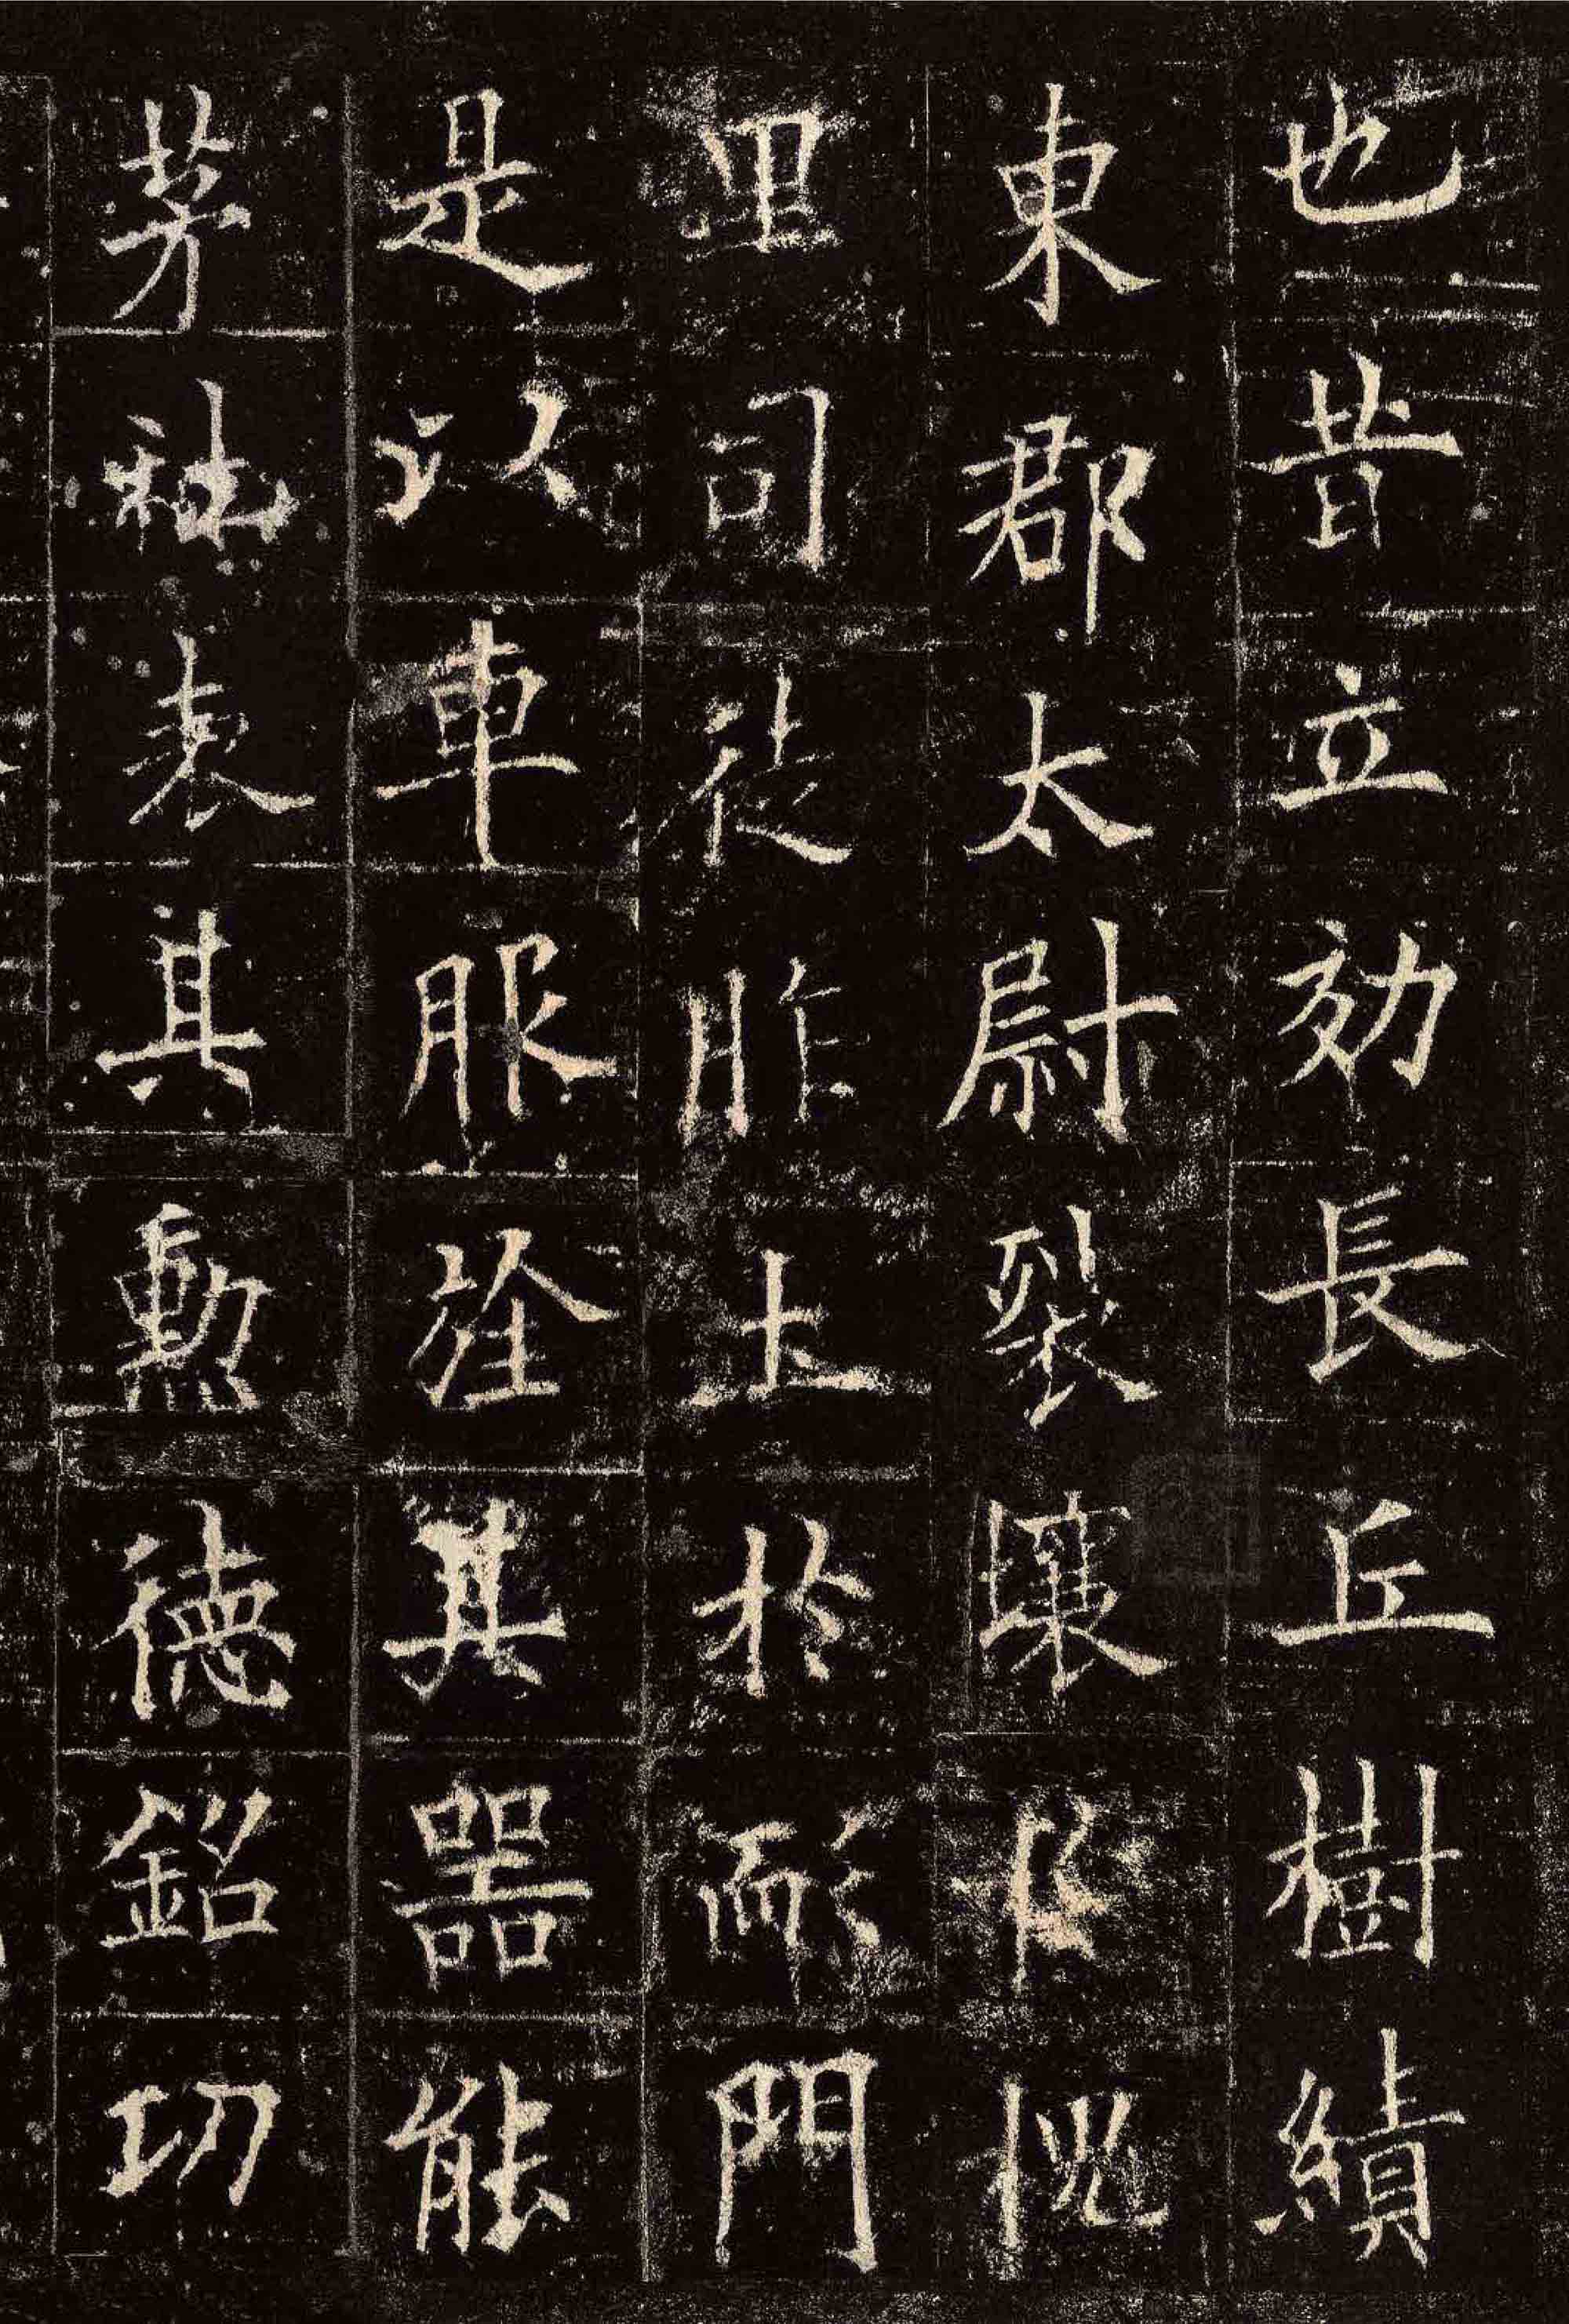 也昔立効長丘樹績
東郡太尉裂壤於槐
里司徒胙土於耏門
是以車服旌其器能
茅社表其勳德銘功